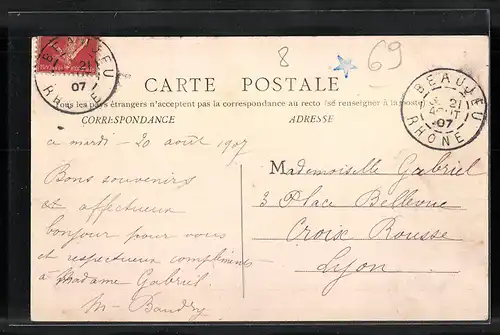 BEAUJEU
21
07
RHONE
8
69
BEAUJEU
21
AOUT
07
RHONE
CARTE POSTALE
Tous les pays étrangers n'acceptent pas la correspondance au recto (se renseigner à la poste)
CORRESPONDANCE
ADRESSE
ce mardi - 20 août 1907
Bons souvenirs
et affectueux
bonjour pour vous
et respectueux compliments
à Madame Gabriel
M. Baudry
Mademoiselle Gabriel
3 Place Bellevue
Croix Rousse
Lyon